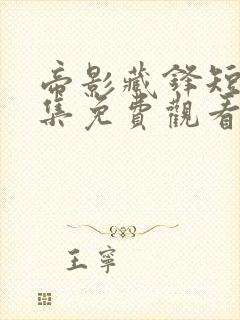 帝影藏鋒短
集免費觀看
王寧